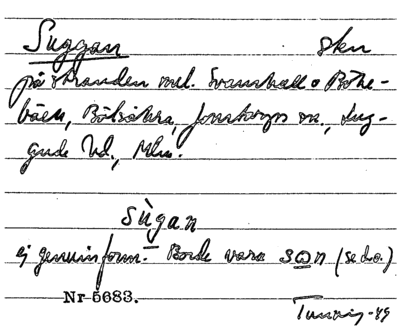 Suggan skn
på stranden mel. Svanshall o Böke-
båen, Bölsåkra, Jonstorps sn., Lug-
gude hd., Mlm.
sùgan
ej genuin form. Borde vara son (se d.o.)
Nr 5683.
-49